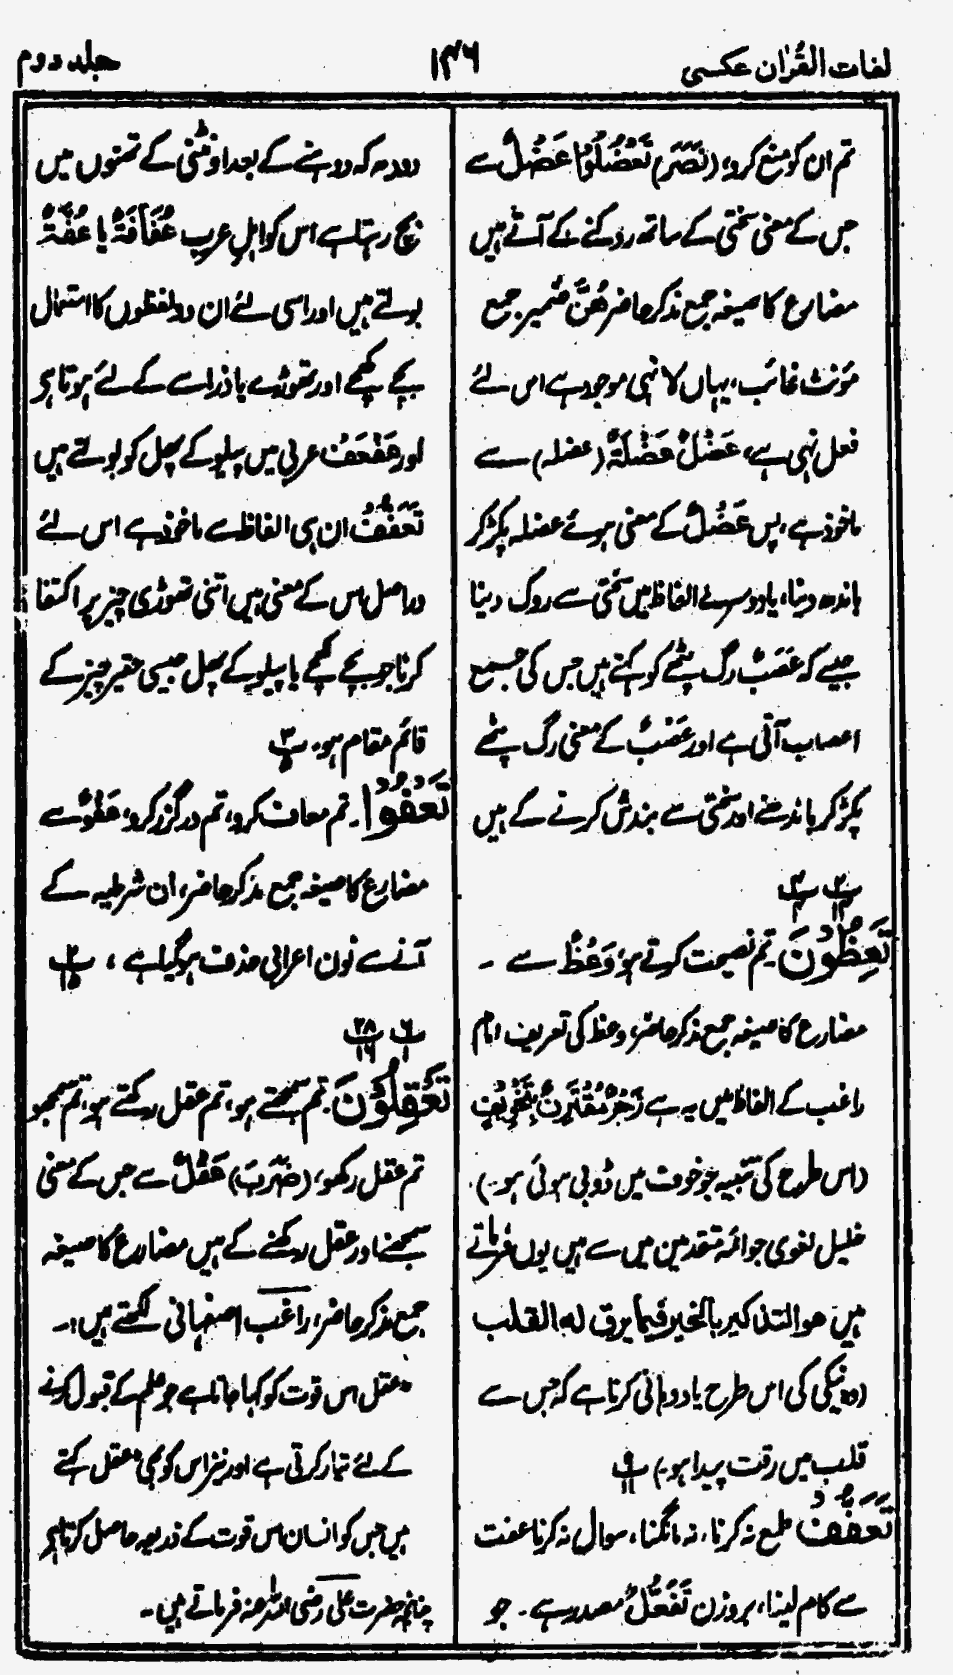 لغات القرآن عکسی
۱۴۶
جلد دوم
تم ان کو منع کرو، (نَصَرَ) تَعْضُلُوْا عَضْلٌ سے
جس کے معنی سختی کے ساتھ روکنے کے آتے ہیں
مضارع کا صیغہ جمع مذکر حاضر هُنَّ ضمیر جمع
مؤنث غائب، یہاں لا نہی موجود ہے اس لئے
فعل نہی ہے، عَضْلٌ عَضْلَةٌ (عضلہ) سے
ماخوذ ہے، پس عَضْلٌ کے معنی ہوئے عضلہ پکڑ کر
باندھ دینا، یا دوسرے الفاظ میں سختی سے روک دینا
جیسے کہ عَصَبٌ رگ پٹھے کو کہتے ہیں جس کی جمع
اعصاب آتی ہے اور عَصْبٌ کے معنی رگ پٹھے
پکڑ کر باندھنے اور سختی سے بندش کرنے کے ہیں
پ۲ پ۴
تَعِظُوْنَ تم نصیحت کرتے ہو، وَعْظٌ سے ۔
مضارع کا صیغہ جمع مذکر حاضر، وعظ کی تعریف امام
راغب کے الفاظ میں یہ ہے زَجْرٌ مُقْتَرِنٌ بِتَخْوِيْفٍ
(اس طرح کی تنبیہ جو خوف میں ڈوبی ہوئی ہو۔)
خلیل لغوی جو ائمہ متقدمین میں سے ہیں یوں فرماتے
ہیں هو التذكير بالخير فيما يرق له القلب
(وہ نیکی کی اس طرح یاد دہانی کرنا ہے کہ جس سے
قلب میں رقت پیدا ہو۔) پ۹
تَعَفُّفْ طمع نہ کرنا، نہ مانگنا، سوال نہ کرنا عفت
سے کام لینا، بروزن تَفَعُّلٌ مصدر ہے۔ جو
دودھ کہ دوہنے کے بعد اونٹنی کے تھنوں میں
بچ رہتا ہے اس کو اہل عرب عُفَافَةٌ یا عُفَّةٌ
بولتے ہیں اور اسی لئے ان دو لفظوں کا استعمال
بچے کھچے اور تھوڑے یا ذرا سے کے لئے ہوتا ہے
اور عَفْعَفْ عربی میں پیلو کے پھل کو بولتے ہیں
تَعَفُّفُ ان ہی الفاظ سے ماخوذ ہے اس لئے
دراصل اس کے معنی ہیں اتنی تھوڑی چیز پر اکتفا
کرنا جو بچے کھچے یا پیلو کے پھل جیسی حقیر چیز کے
قائم مقام ہو۔ پ۳
تَعْفُوْا۔ تم معاف کرو، تم درگزر کرو، عَفْوٌ سے
مضارع کا صیغہ جمع مذکر حاضر، ان شرطیہ کے
آنے سے نون اعرابی حذف ہوگیا ہے ، پ۲
پ۶ پ۲۸
تَعْقِلُوْنَ تم سمجھتے ہو، تم عقل رکھتے ہو، تم سمجھو
تم عقل رکھو، (ضَرَبَ) عَقْلٌ سے جس کے معنی
سمجھنے اور عقل رکھنے کے ہیں مضارع کا صیغہ
جمع مذکر حاضر، راغب اصفہانی لکھتے ہیں،۔
"عقل اس قوت کو کہا جاتا ہے جو علم کے قبول کرنے
کے لئے تیار کرتی ہے اور نیز اس کو بھی عقل کہتے
ہیں جس کو انسان اس قوت کے ذریعہ حاصل کرتا ہے
چنانچہ حضرت علی رضی اللہ عنہ فرماتے ہیں۔